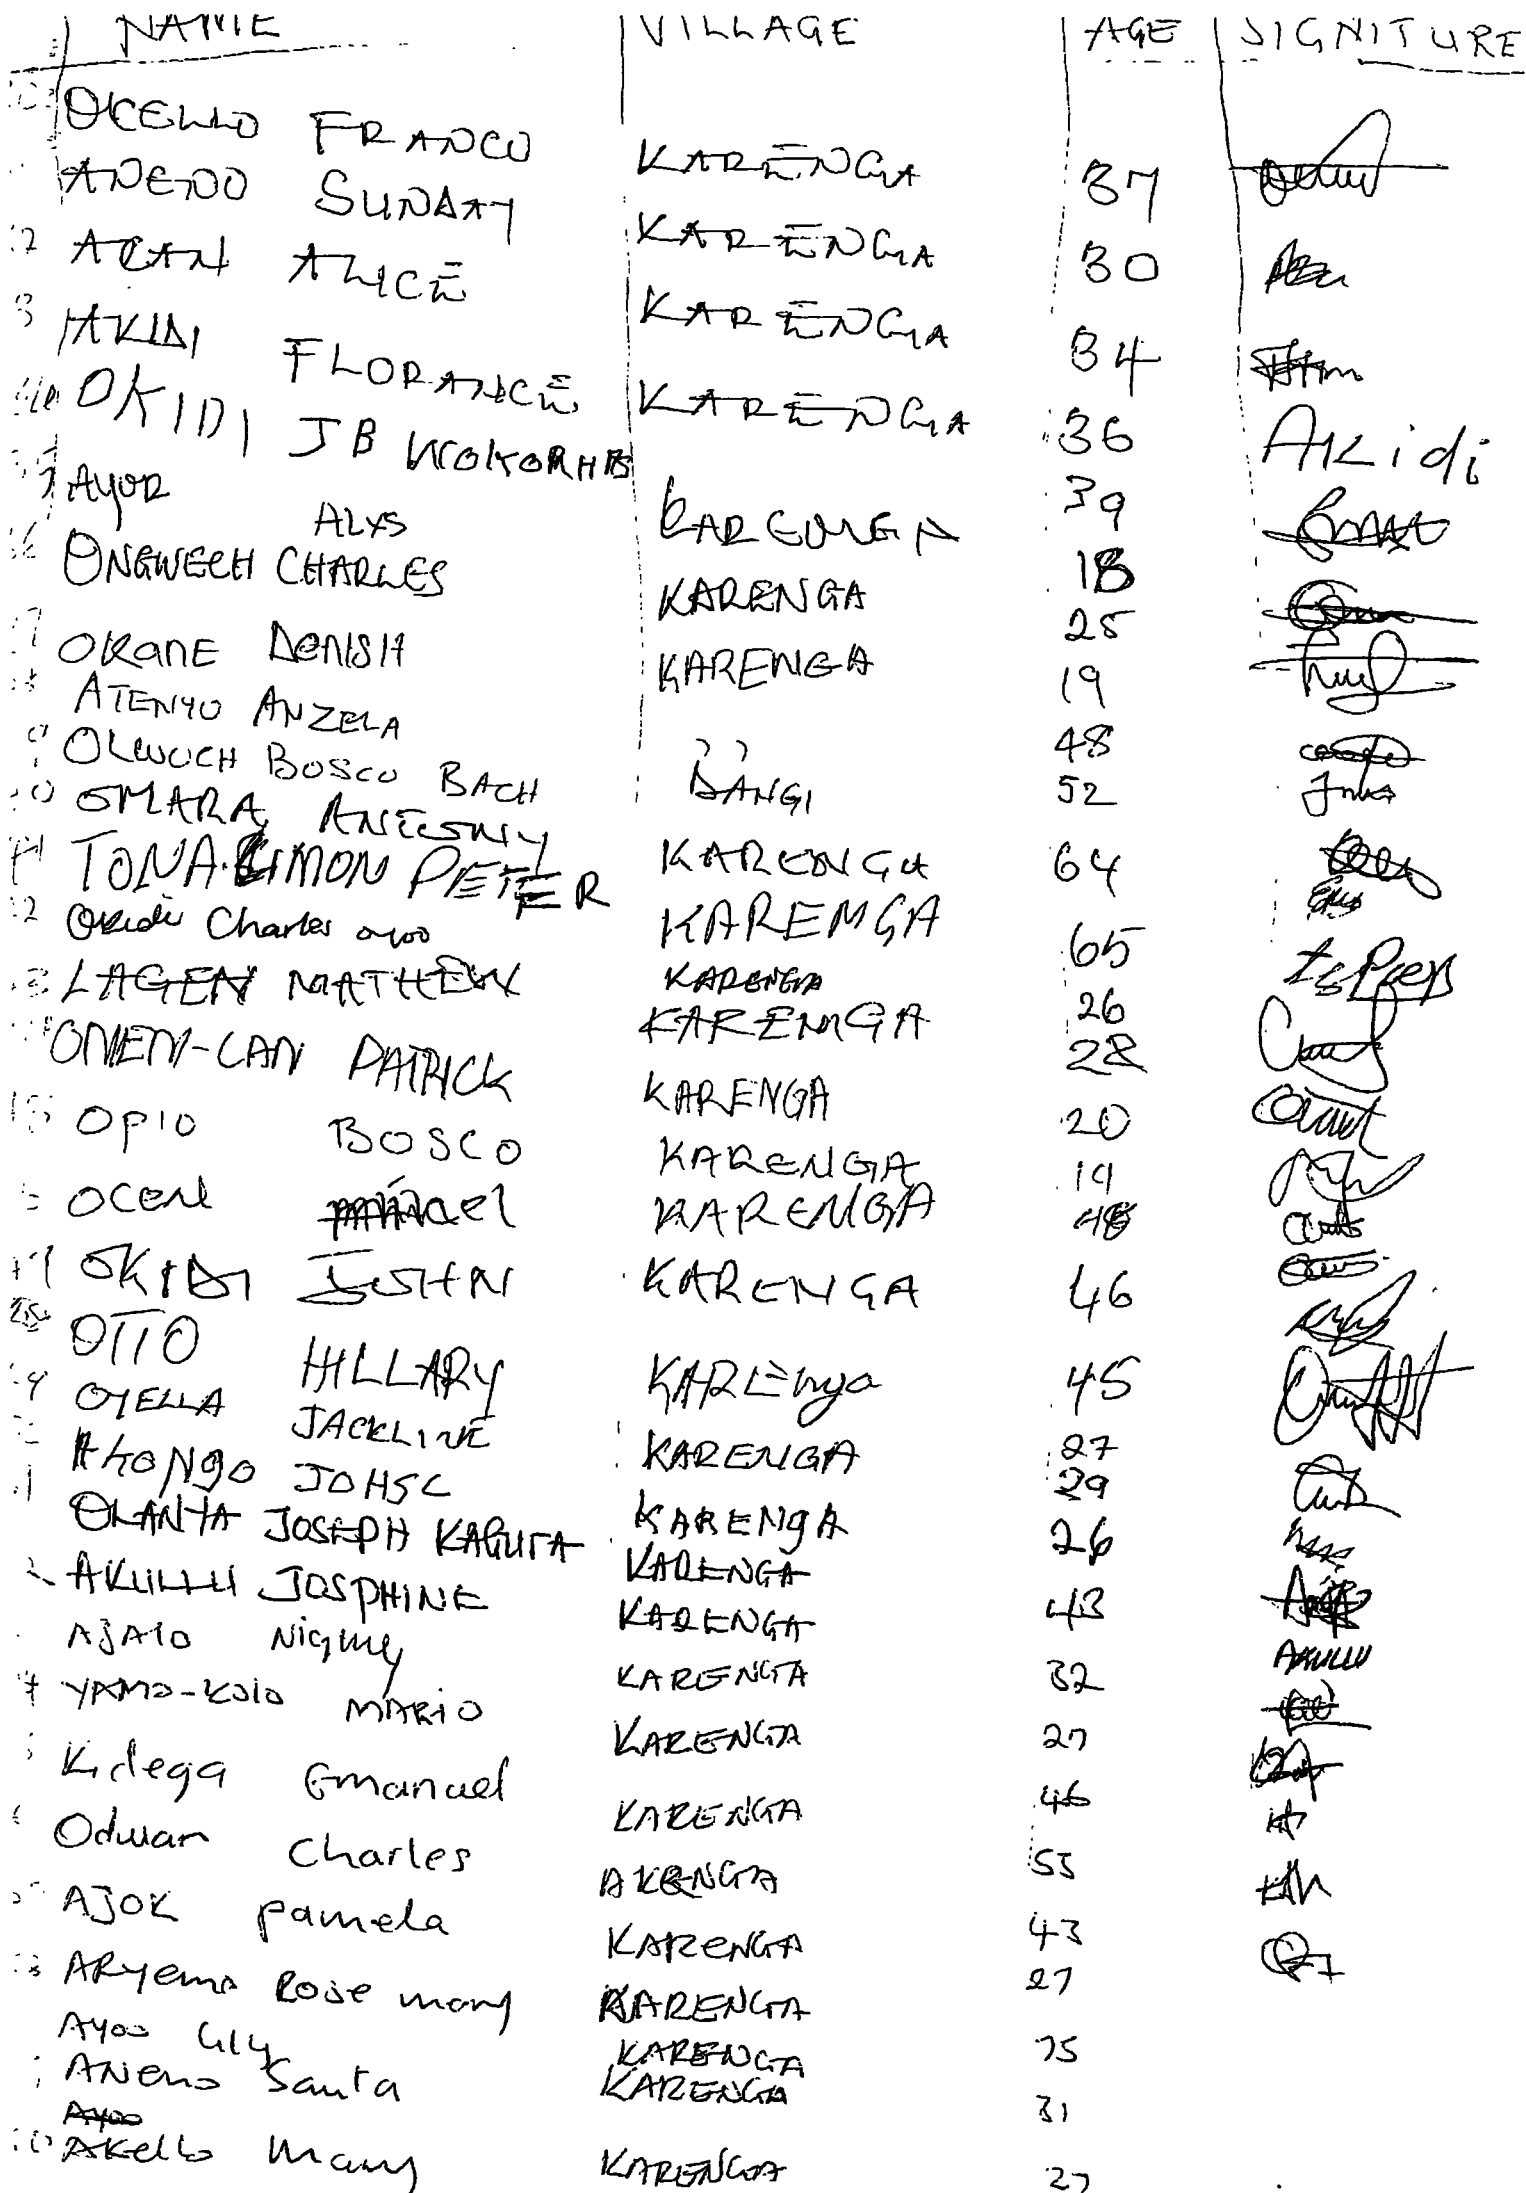 NAME VILLAGE AGE SIGNITURE
OCELLO FRANCO KARENGA 37
ANENO SUNDAY KARENGA 30
ACAN ALICE KARENGA 34
AKIDI FLORANCE KARENGA 36 AKidi
OKIDI JB WOKORHB KARENGA 39
AYOR ALYS KARENGA 18
ONGWECH CHARLES KARENGA 25
OKANE DENISH 19
ATENYO ANZELA ,, 48
OLWOCH BOSCO BACH BANGI 52
OMARA ANTHONY KARENGA 64
TONA SIMON PETER KAREMGA 65
Okidi Charles ayoo KARENGA 26
LAGEN MATHEW KARENGA 28
ONEN-CAN PATRICK KARENGA 20
OPIO BOSCO KARENGA 19
OCEN KARENGA 48
OKIDI JOHN KARENGA 46
OTTO HILLARY KARENga 45
OYELLA JACKLINE KARENGA 27
AKONgO JOHSC KARENgA 29
OLANYA JOSEPH KAGUTA KARENGA 26
AKULLU JOSPHINE KARENGA 43 AKULLU
AJALO KARENGA 32
YAMO-KOIO MARIO KARENGA 27
Kidega Emanuel KARENGA 46
Odwar Charles AKENGA 55
AJOK Pamela KARENGA 43
ARyemo Rose mary KARENGA 27
Ayoo KARENGA 75
ANeno Santa KARENGA 31
Ayoo
AKello Mary KARENGA 27